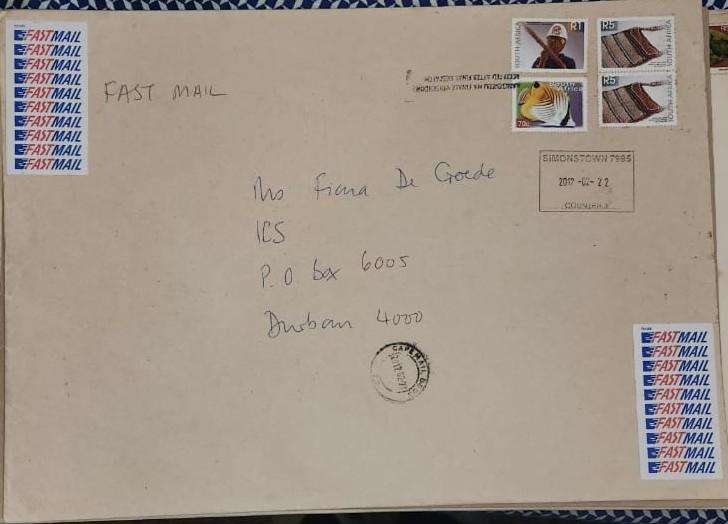 FASTMAIL
FASTMAIL
FASTMAIL
FASTMAIL
FASTMAIL
FASTMAIL
FASTMAIL
FASTMAIL
FASTMAIL
FASTMAIL
FAST MAIL
SOUTH AFRICA
R1
R5
SOUTH AFRICA
South Africa
70c
R5
SOUTH AFRICA
POSTED AFTER FINAL DESPATCH
SIMONSTOWN 7995
2017-02-22
COUNTER
Ms Fiona De Goede
ICS
P.O box 6005
Durban 4000
CAPEMAIL
FASTMAIL
FASTMAIL
FASTMAIL
FASTMAIL
FASTMAIL
FASTMAIL
FASTMAIL
FASTMAIL
FASTMAIL
FASTMAIL